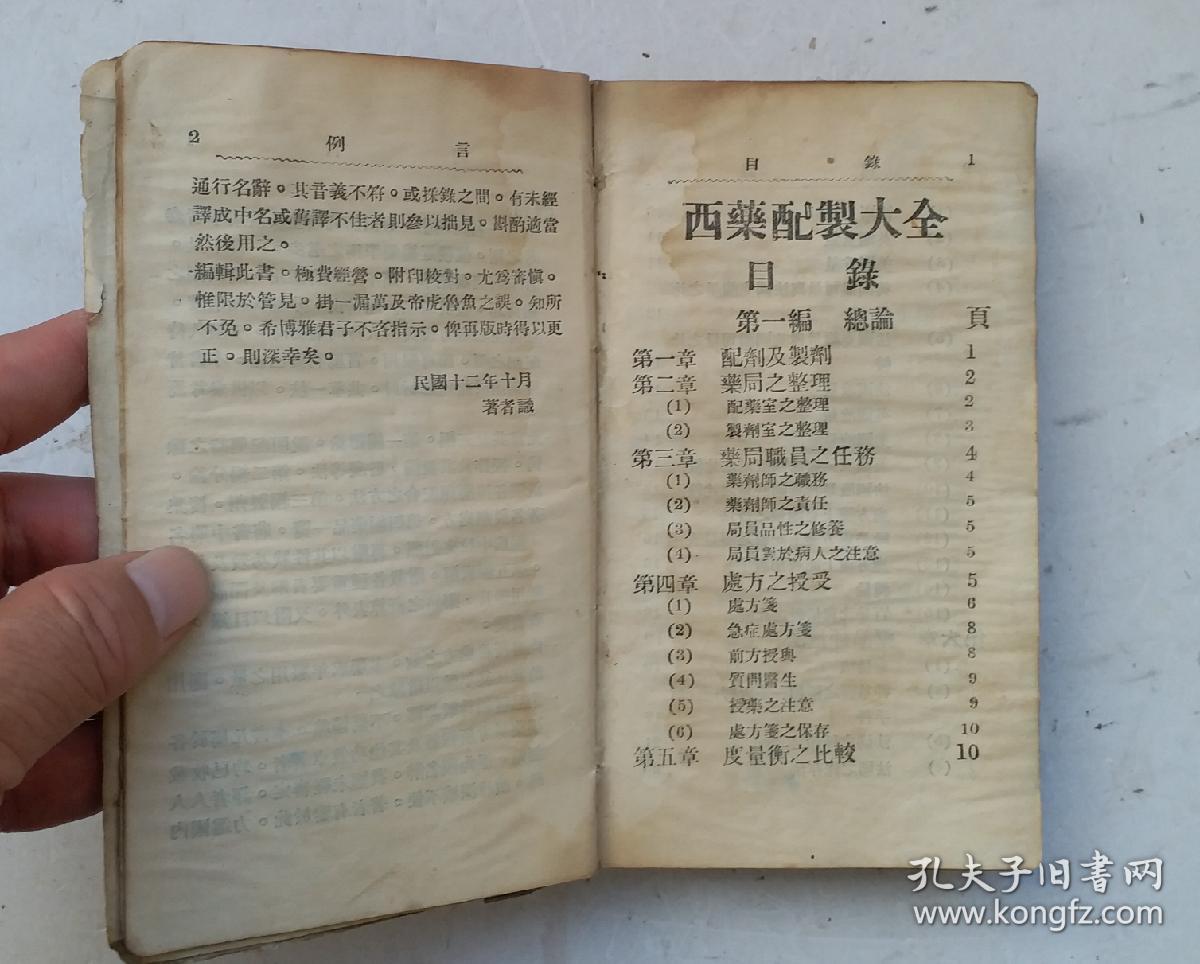 2 例言
通行名辭。其音義不符。或採錄之間。有未經
譯成中名或舊譯不佳者則參以拙見。斟酌適當
然後用之。
一編輯此書。極費經營。附印校對。尤爲審愼。
惟限於管見。掛一漏萬及帝虎魯魚之誤。知所
不免。希博雅君子不吝指示。俾再版時得以更
正。則深幸矣。
民國十二年十月
著者識
目錄 1
西藥配製大全
目錄
第一編 總論 頁
第一章 配劑及製劑 1
第二章 藥局之整理 2
(1) 配藥室之整理 2
(2) 製劑室之整理 3
第三章 藥局職員之任務 4
(1) 藥劑師之職務 4
(2) 藥劑師之責任 5
(3) 局員品性之修養 5
(4) 局員對於病人之注意 5
第四章 處方之授受 5
(1) 處方箋 6
(2) 急症處方箋 8
(3) 前方授與 8
(4) 質問醫生 9
(5) 授藥之注意 9
(6) 處方箋之保存 10
第五章 度量衡之比較 10
孔夫子旧书网
www.kongfz.com